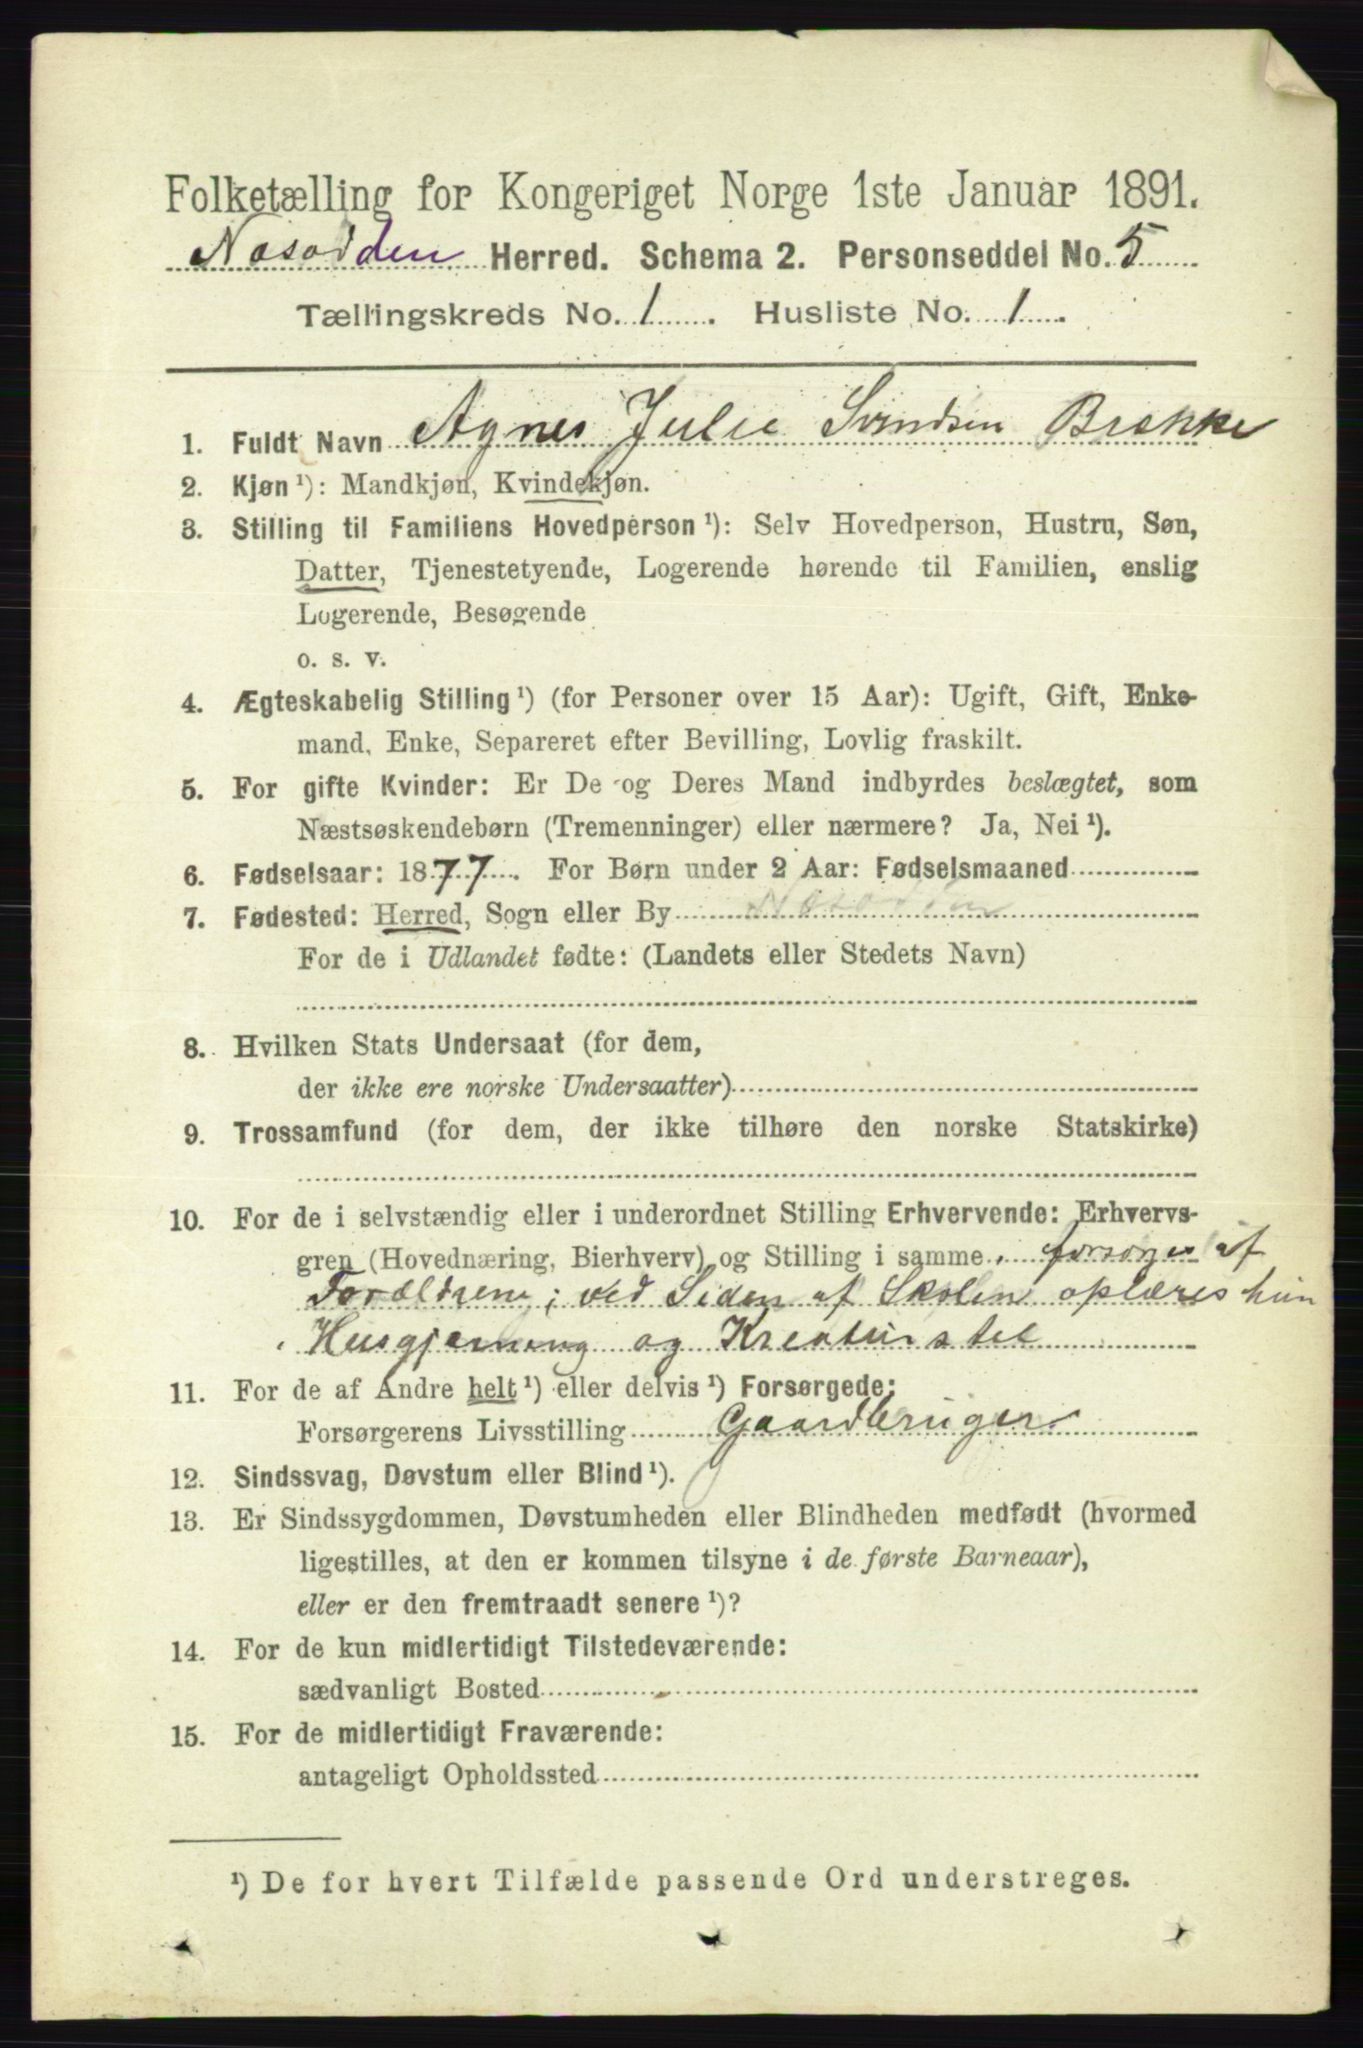 Folketælling for Kongeriget Norge 1ste Januar 1891.
Næsodden Herred. Schema 2. Personseddel No. 5
Tællingskreds No. 1. Husliste No. 1.
1. Fuldt Navn Agnes Julie Svendsen Brekke
2. Kjøn ¹): Mandkjøn, Kvindekjøn.
3. Stilling til Familiens Hovedperson ¹): Selv Hovedperson, Hustru, Søn,
Datter, Tjenestetyende, Logerende hørende til Familien, enslig
Logerende, Besøgende
o. s. v.
4. Ægteskabelig Stilling ¹) (for Personer over 15 Aar): Ugift, Gift, Enke-
mand, Enke, Separeret efter Bevilling, Lovlig fraskilt.
5. For gifte Kvinder: Er De og Deres Mand indbyrdes beslægtet, som
Næstsøskendebørn (Tremenninger) eller nærmere? Ja, Nei ¹).
6. Fødselsaar: 1877. For Børn under 2 Aar: Fødselsmaaned
7. Fødested: Herred, Sogn eller By Næsodden
For de i Udlandet fødte: (Landets eller Stedets Navn)
8. Hvilken Stats Undersaat (for dem,
der ikke ere norske Undersaatter)
9. Trossamfund (for dem, der ikke tilhøre den norske Statskirke)
10. For de i selvstændig eller i underordnet Stilling Erhvervende: Erhvervs-
gren (Hovednæring, Bierhverv) og Stilling i samme. forsørges af
Forældrene; ved Siden af Skolen oplæres hun
i Husgjerning og Kreaturstel
11. For de af Andre helt ¹) eller delvis ¹) Forsørgede:
Forsørgerens Livsstilling Gaardbruger
12. Sindssvag, Døvstum eller Blind ¹).
13. Er Sindssygdommen, Døvstumheden eller Blindheden medfødt (hvormed
ligestilles, at den er kommen tilsyne i de første Barneaar),
eller er den fremtraadt senere ¹)?
14. For de kun midlertidigt Tilstedeværende:
sædvanligt Bosted
15. For de midlertidigt Fraværende:
antageligt Opholdssted
¹) De for hvert Tilfælde passende Ord understreges.